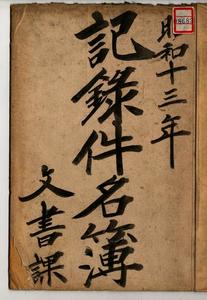 昭和十三年
記錄件名簿
文書課